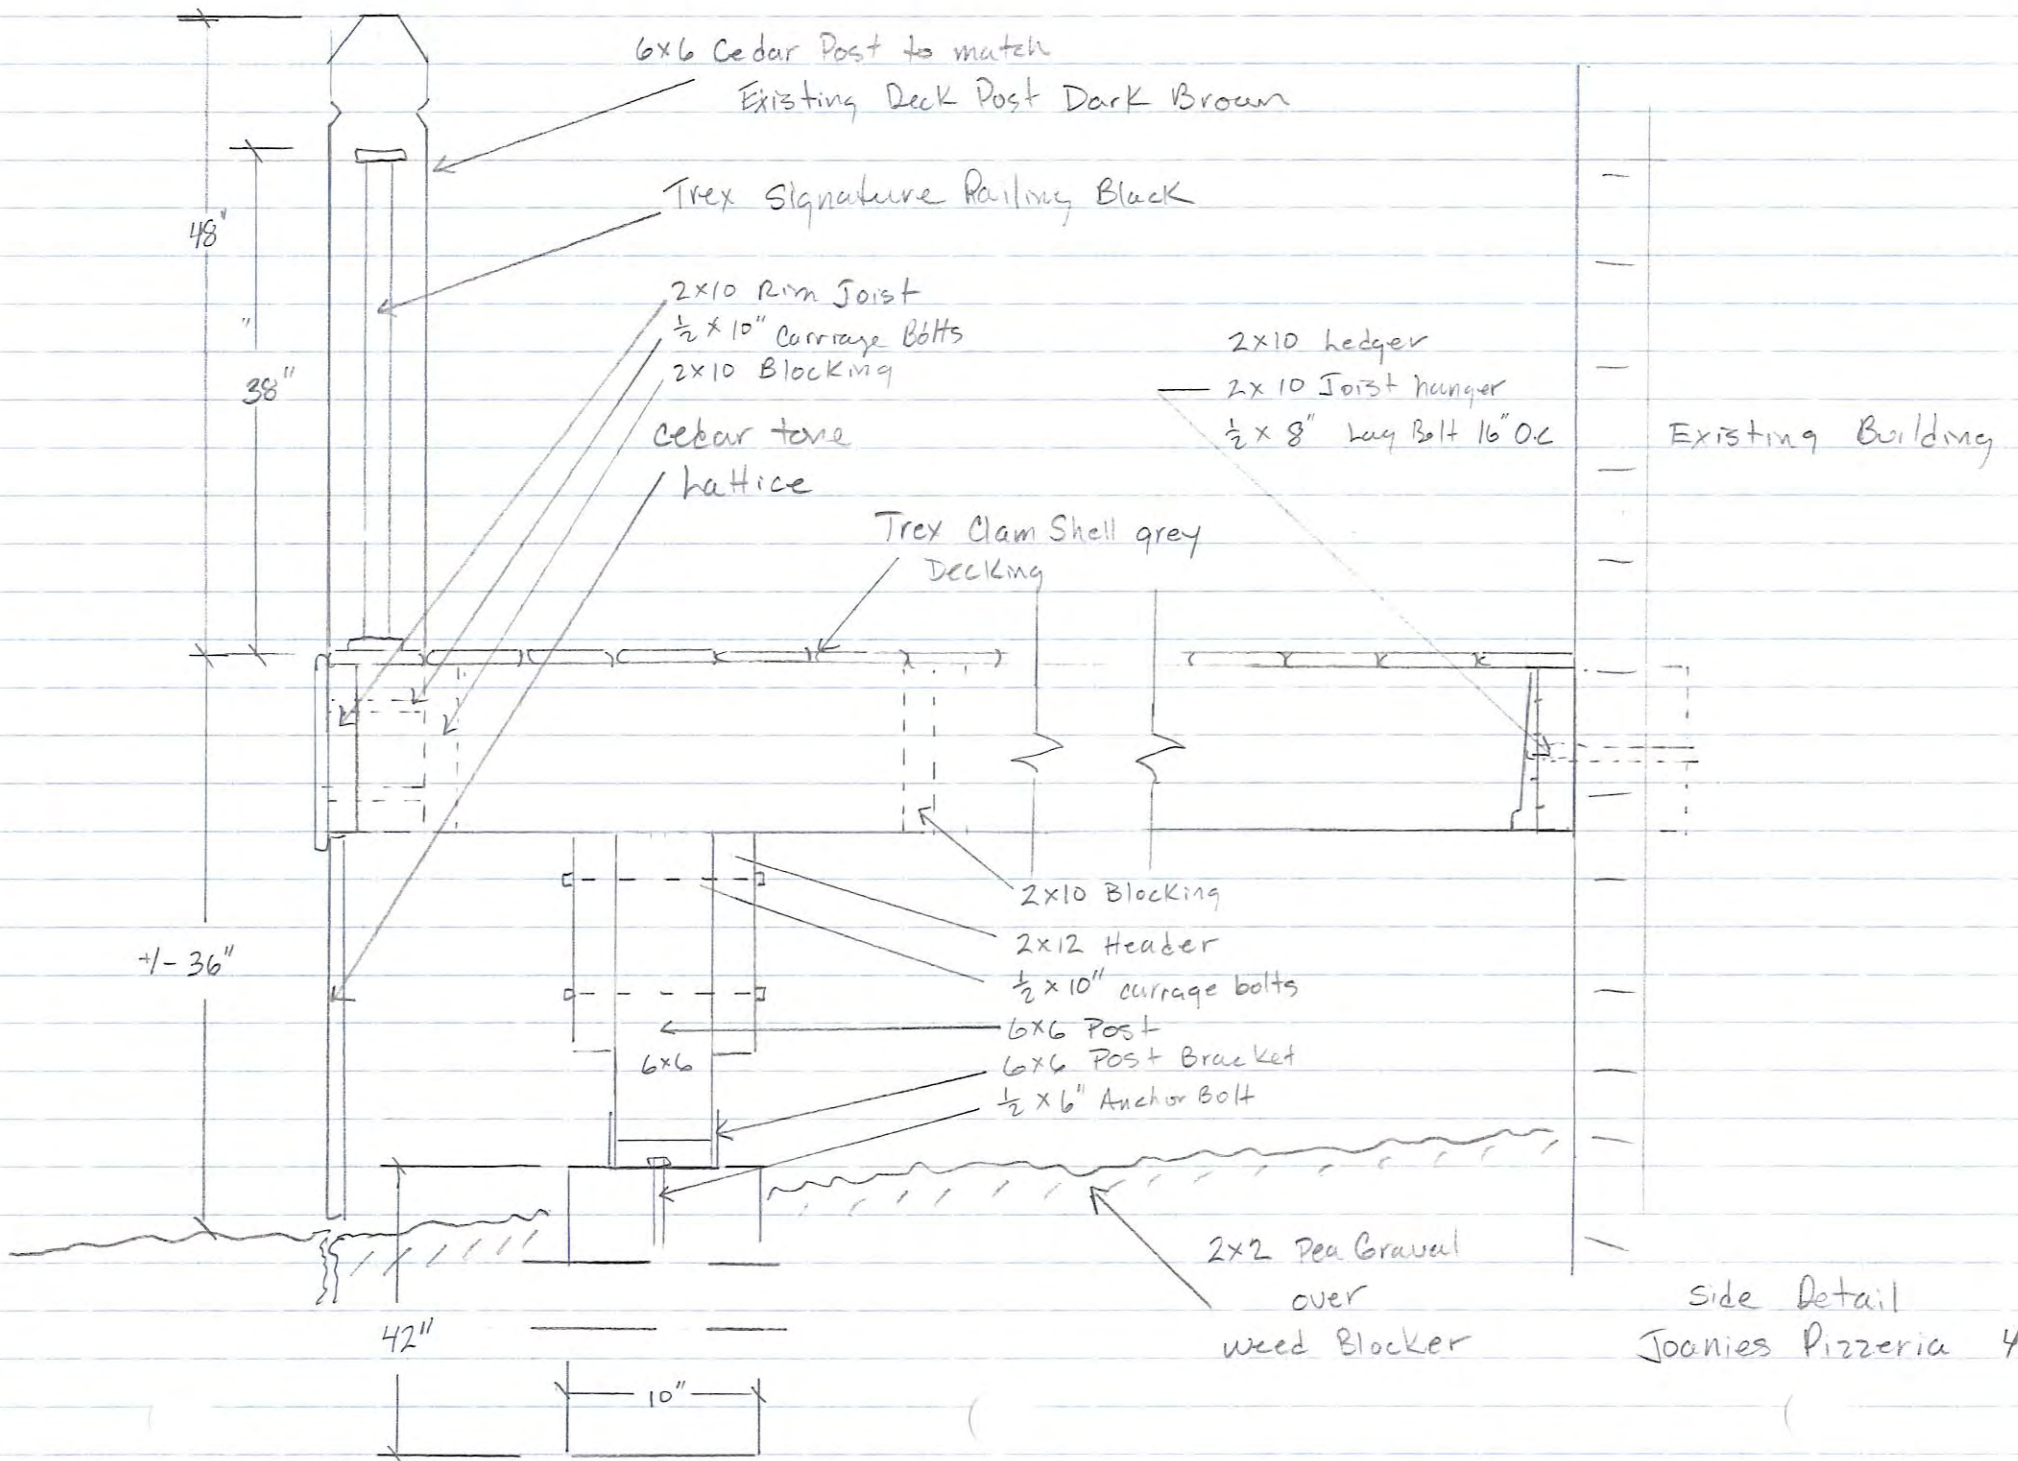 6x6 Cedar Post to match
Existing Deck Post Dark Brown
Trex Signature Railing Black
48"
"
38"
2x10 Rim Joist
½ x 10" Carriage Bolts
2x10 Blocking
cedar tone
Lattice
2x10 Ledger
2x10 Joist hanger
½ x 8" Lag Bolt 16" O.C
Existing Building
Trex Clam Shell grey
Decking
+/- 36"
2x10 Blocking
2x12 Header
½ x 10" currage bolts
6x6 Post
6x6
6x6 Post Bracket
½ x 6" Anchor Bolt
2x2 Pea Graval
over
weed Blocker
42"
10"
Side Detail
Joanies Pizzeria 4